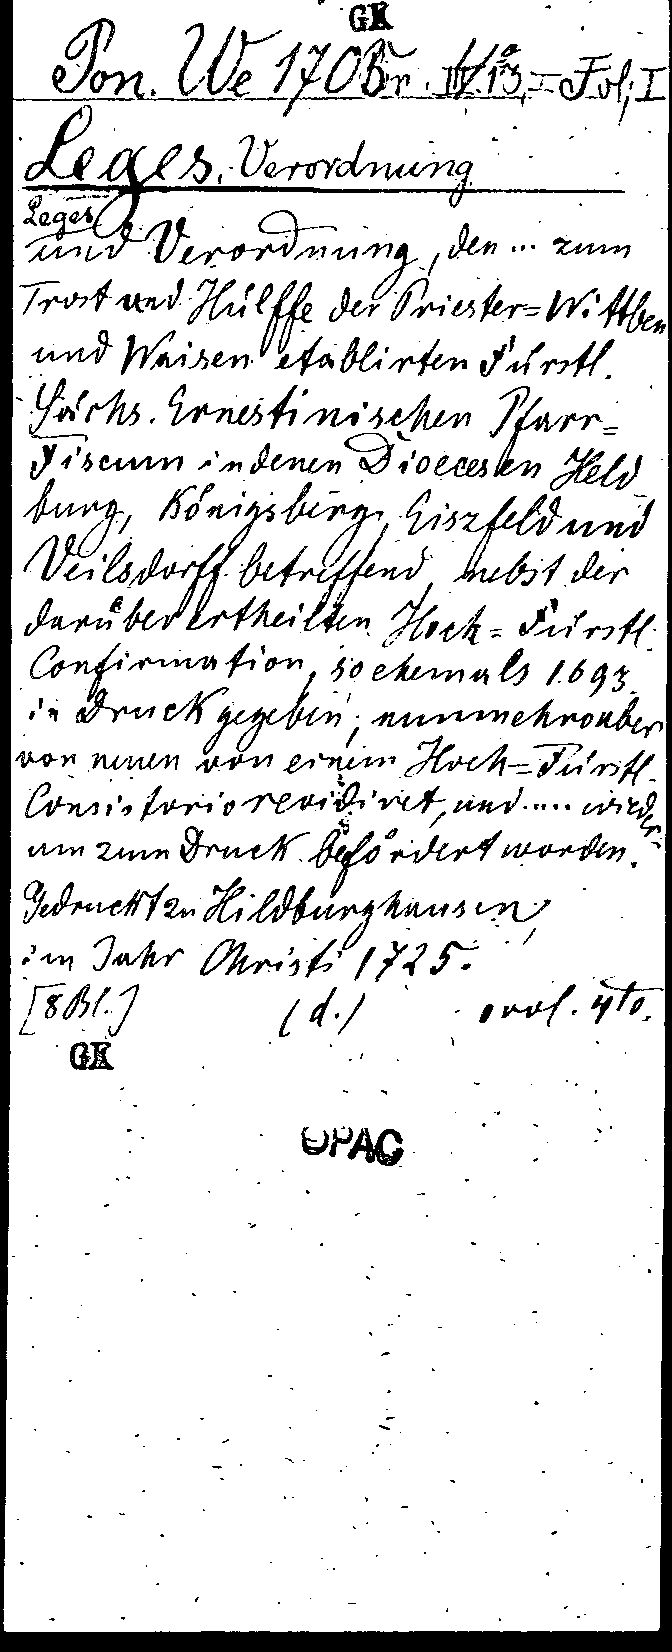 GK
Pon. We 1705 Fol, I
Leges, Verordnung
Leges
und Verordnung, den ... zum
Trost und Hülffe der Priester=Wittben
und Waisen etablirten Fürstl.
Sächs. Ernestinischen Pfarr=
Fiscum in denen Dioecesen Held
burg, Königsberg, Eiszfeld und
Veilsdorff betreffend nebst der
darüber ertheilten Hoch=Fürstl.
Confirmation, so ehemals 1693
in Druck gegeben; nunmehro aber
von neuen von einem Hoch=Fürstl.
Consistorio revidiret, und .... wieder=
um zum Druck befördert worden.
Gedruckt zu Hildburghausen,
im Jahr Christi 1725.
[8 Bl.] (d.) 4to.
GK
OPAC